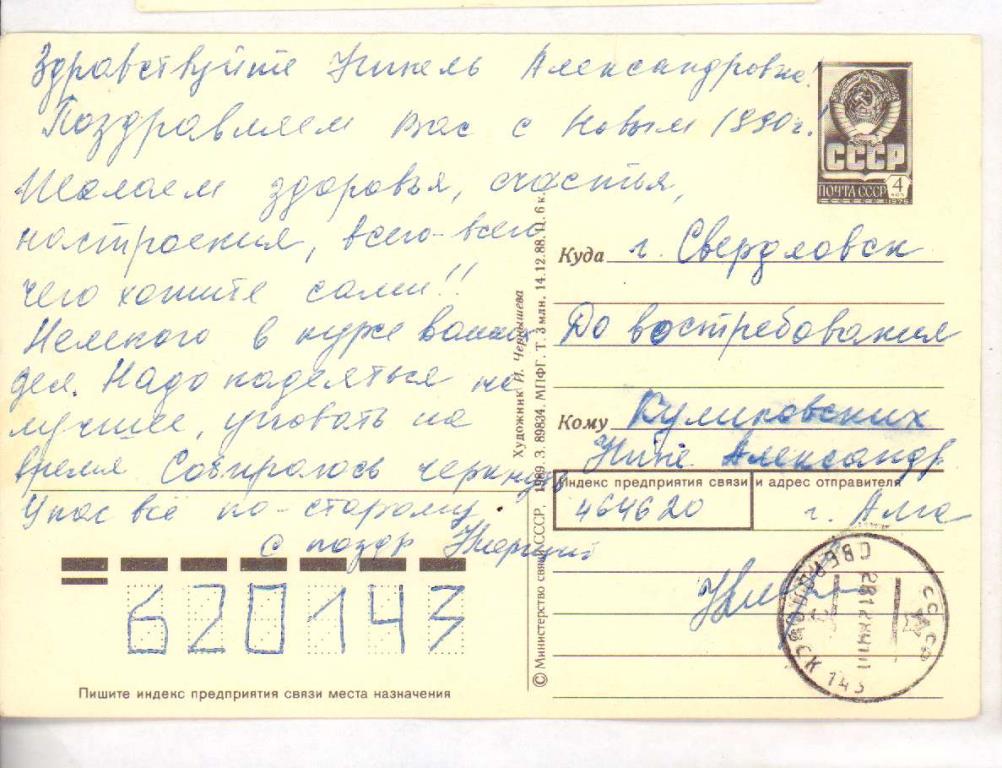 Здравствуйте Нинель Александровна!
Поздравляем Вас с Новым 1990г.!
Желаем здоровья, счастья,
настроения, всего-всего
чего хотите сами!!
Немного в курсе ваших
дел. Надо надеяться на
лучшее, уповать на
время Собиралась черкнуть
У нас всё по-старому.
С поздр
620143
Пишите индекс предприятия связи места назначения
Художник И. Чернышева
© Министерство связи СССР. 1989. З. 89834. МПФГ. Т. 3 млн. 14.12.88. Ц. 6 к.
СССР
ПОЧТА СССР 4 коп
Куда г. Свердловск
До востребования
Кому Куликовских
Нине Александр.
Индекс предприятия связи и адрес отправителя
464620 г. Алма
СССР
СВЕРДЛОВСК 143